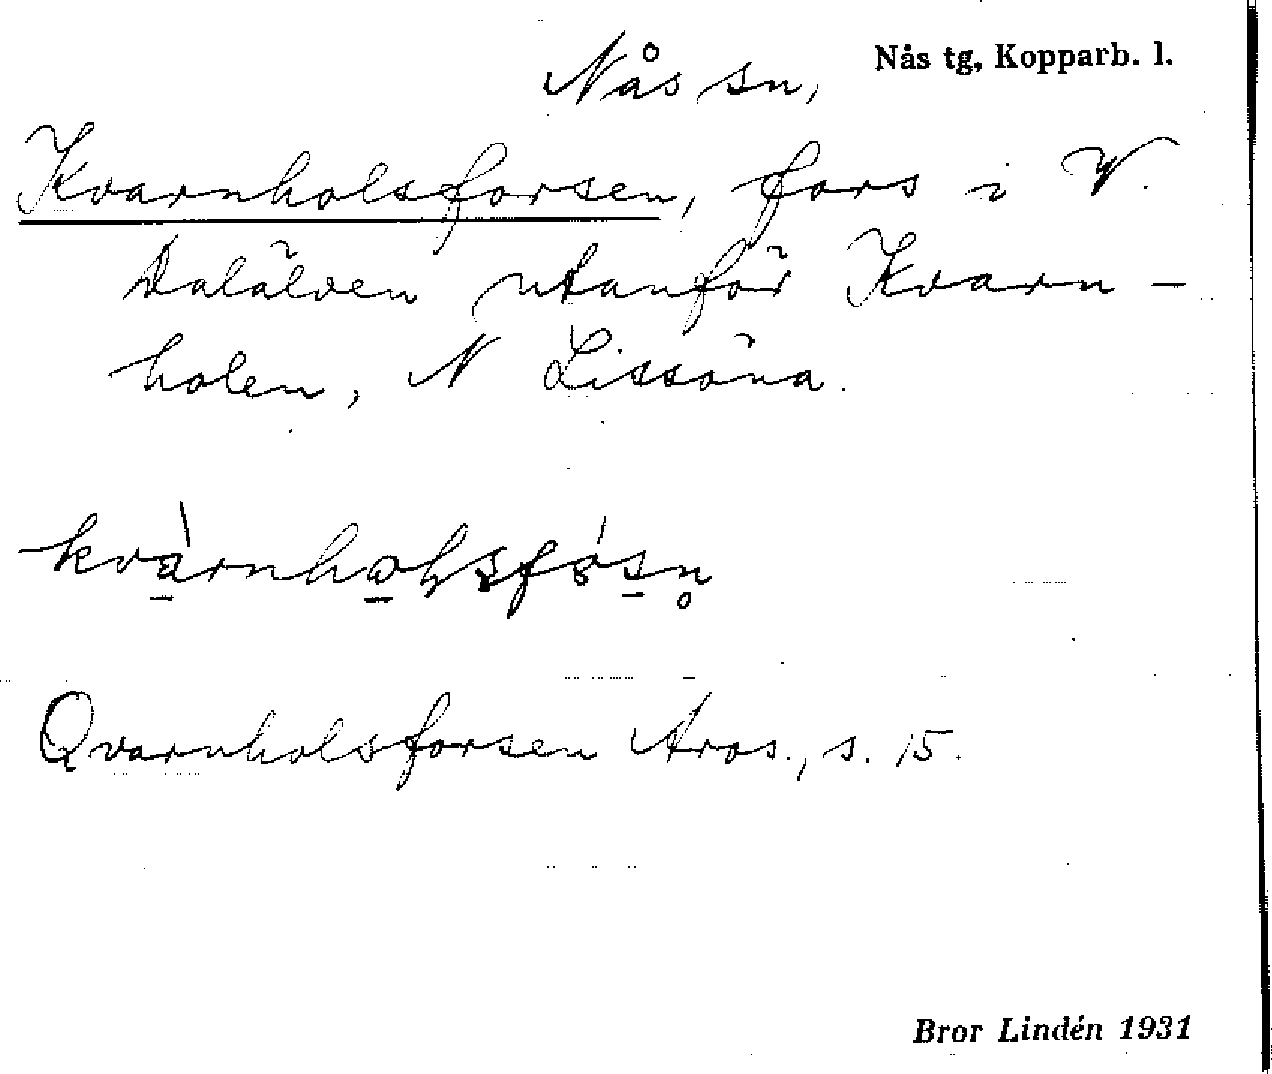 Nås sn, Nås tg, Kopparb. l.
Kvarnholsforsen, fors i V.
Dalälven utanför Kvarn-
holen, N Lissöna.
Qvarnholsforsen Aros., s. 15.
Bror Lindén 1931